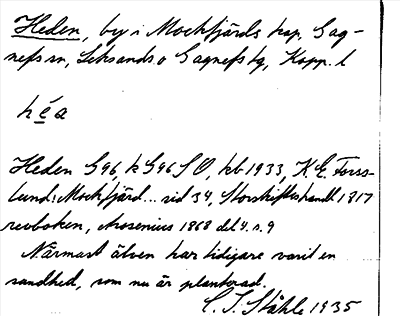 Heden, by i Mockfjärds kap. Gag-
nefs sn, Leksands o Gagnefs tg, Kopp. l
héa
Heden G96, k G96 SO, hb 1933, K. E. Forss-
lund: Mockfjärd... sid 34, Storskifteshandl 1817
revboken, Arosenius 1868 del 4. s. 9
Närmast älven har tidigare varit en
sandhed, som nu är planterad.
C. I. Ståhle 1935